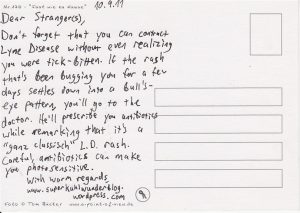 10.9.11
Dear Stranger(s),
Don't forget that you can contract
Lyme Disease without even realizing
you were tick-bitten. If the rash
that's been bugging you for a few
days settles down into a bull's-
eye pattern, you'll go to the
doctor. He'll prescribe you antibiotics
while remarking that it's a
"ganz classisch" L.D. rash.
Careful, antibiotics can make
you photosensitive.
With warm regards,
www.superkuhlwunderblog.
wordpress.com